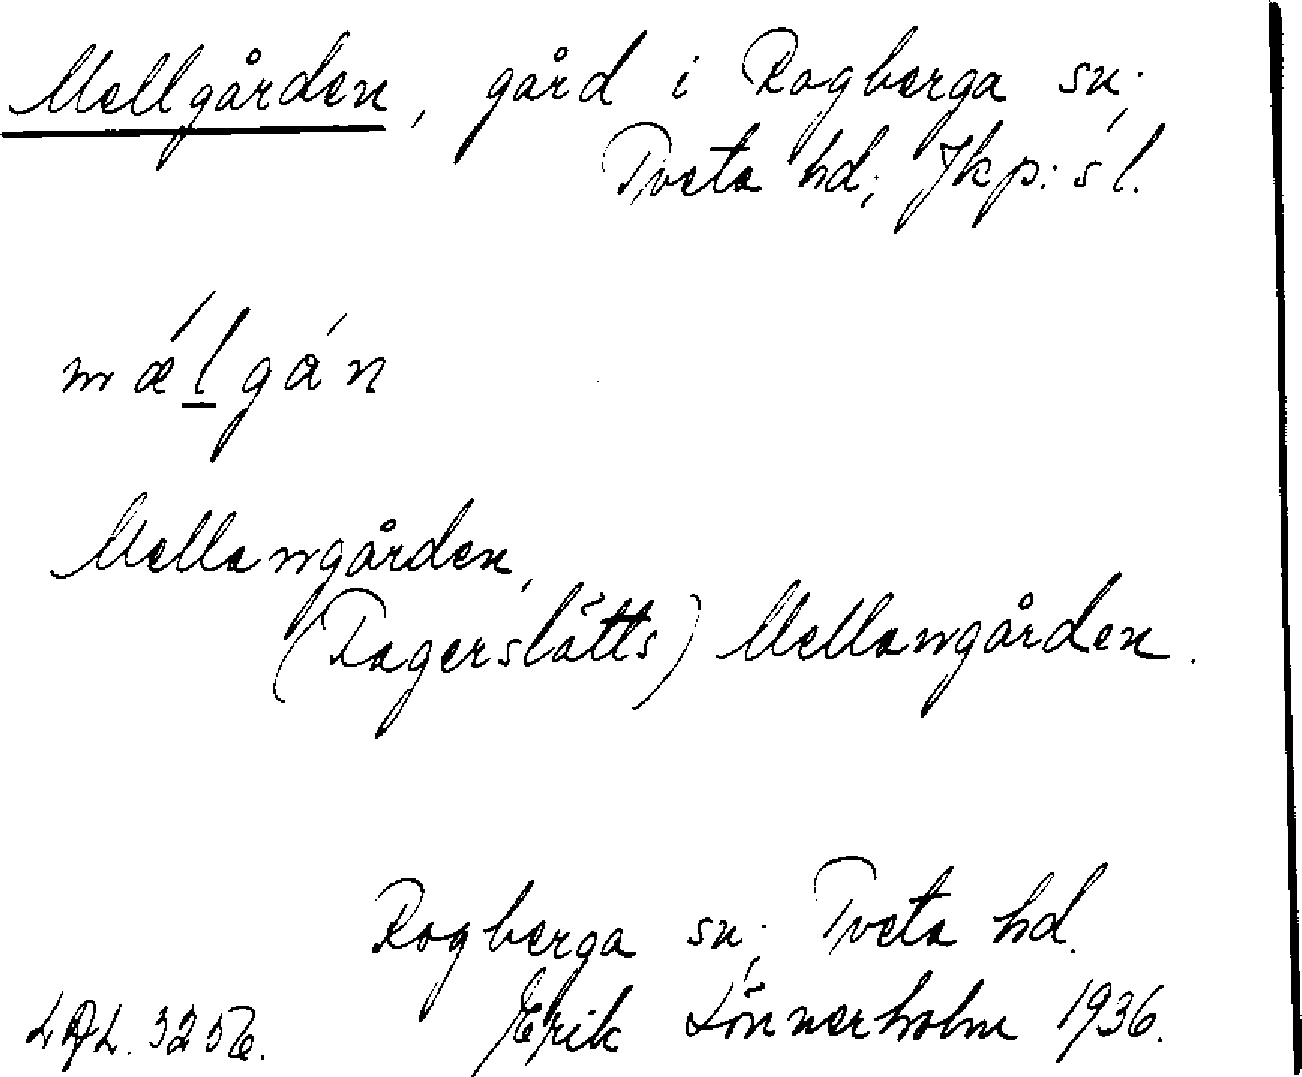 Mellgården, gård i Rogberga sn.
Tveta hd; Jkp:s l.
mǽlgán
Mellangården,
(Fagerslätts) Mellangården.
Rogberga sn; Tveta hd.
Erik Lönnerholm 1936.